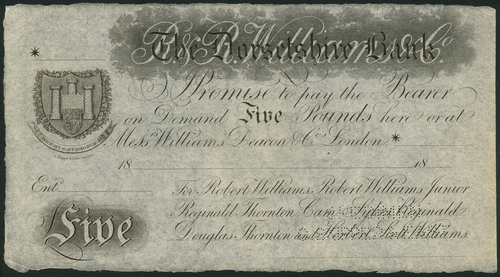 R. & R. Williams & Co.
The Dorsetshire Bank
I Promise to pay the Bearer
on Demand Five Pounds here or at
Mess.rs Williams Deacon & Co. London *
18 18
Ent.d
For Robert Williams, Robert Williams Junior
Reginald Thornton Cam Sykes Reginald
Douglas Thornton and Herbert Scott Williams.
Five